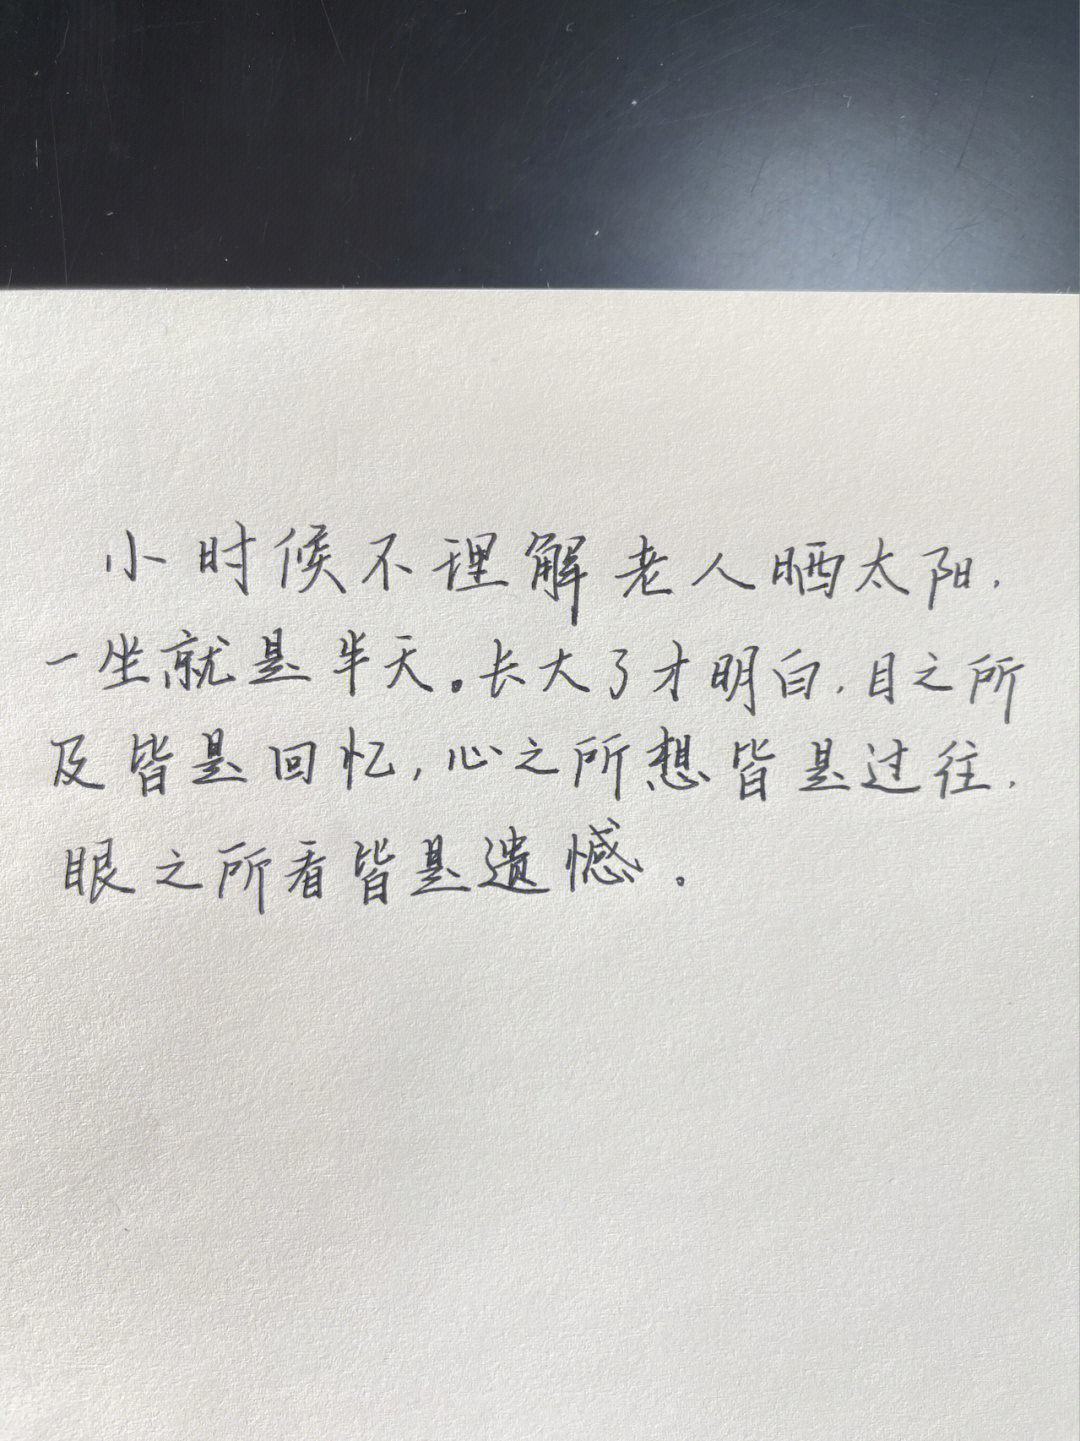 小时候不理解老人晒太阳,
一坐就是半天。长大了才明白,目之所
及皆是回忆,心之所想皆是过往,
眼之所看皆是遗憾。